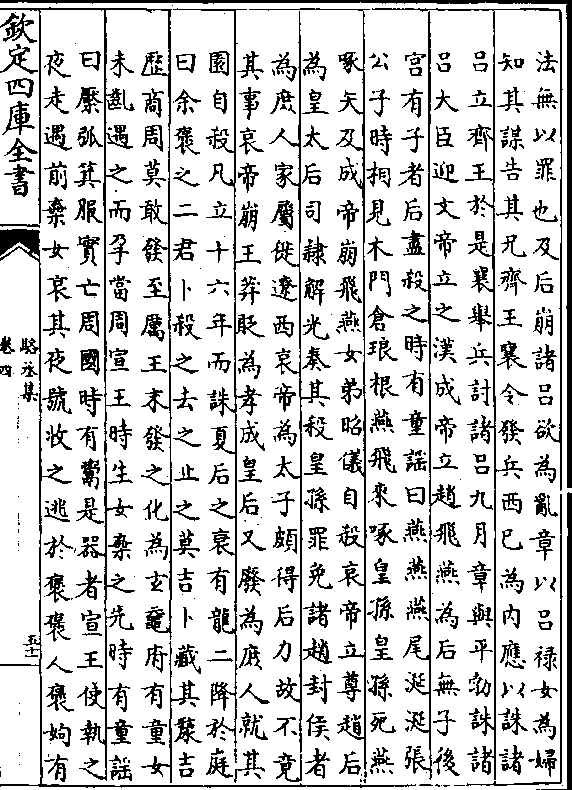 法無以罪也及后崩諸呂欲為亂章以呂禄女為婦
知其謀告其兄齊王襄令發兵西已為内應以誅諸
呂立齊王於是襄舉兵討諸呂九月章與平勃誅諸
呂大臣迎文帝立之漢成帝立趙飛燕為后無子後
宮有子者后盡殺之時有童謡曰燕燕燕尾涎涎張
公子時相見木門倉琅根燕飛來啄皇孫皇孫死燕
啄矢及成帝崩飛燕女弟昭儀自殺哀帝立尊趙后
為皇太后司隷解光奏其殺皇孫罪免諸趙封侯者
為庶人家屬徙遼西哀帝為太子頗得后力故不竟
其事哀帝崩王莽貶為孝成皇后又廢為庶人就其
園自殺凡立十六年而誅夏后之衰有龍二降於庭
曰余褒之二君卜殺之去之止之莫吉卜藏其漦吉
歴商周莫敢發至厲王末發之化為玄黿府有童女
未齓遇之而孕當周宣王時生女棄之先時有童謡
曰檿弧箕服實亡周國時有鬻是器者宣王使執之
夜走遇前棄女哀其夜號收之逃於褒褒人褒姁有
欽定四庫全書
駱丞集
卷四
五十